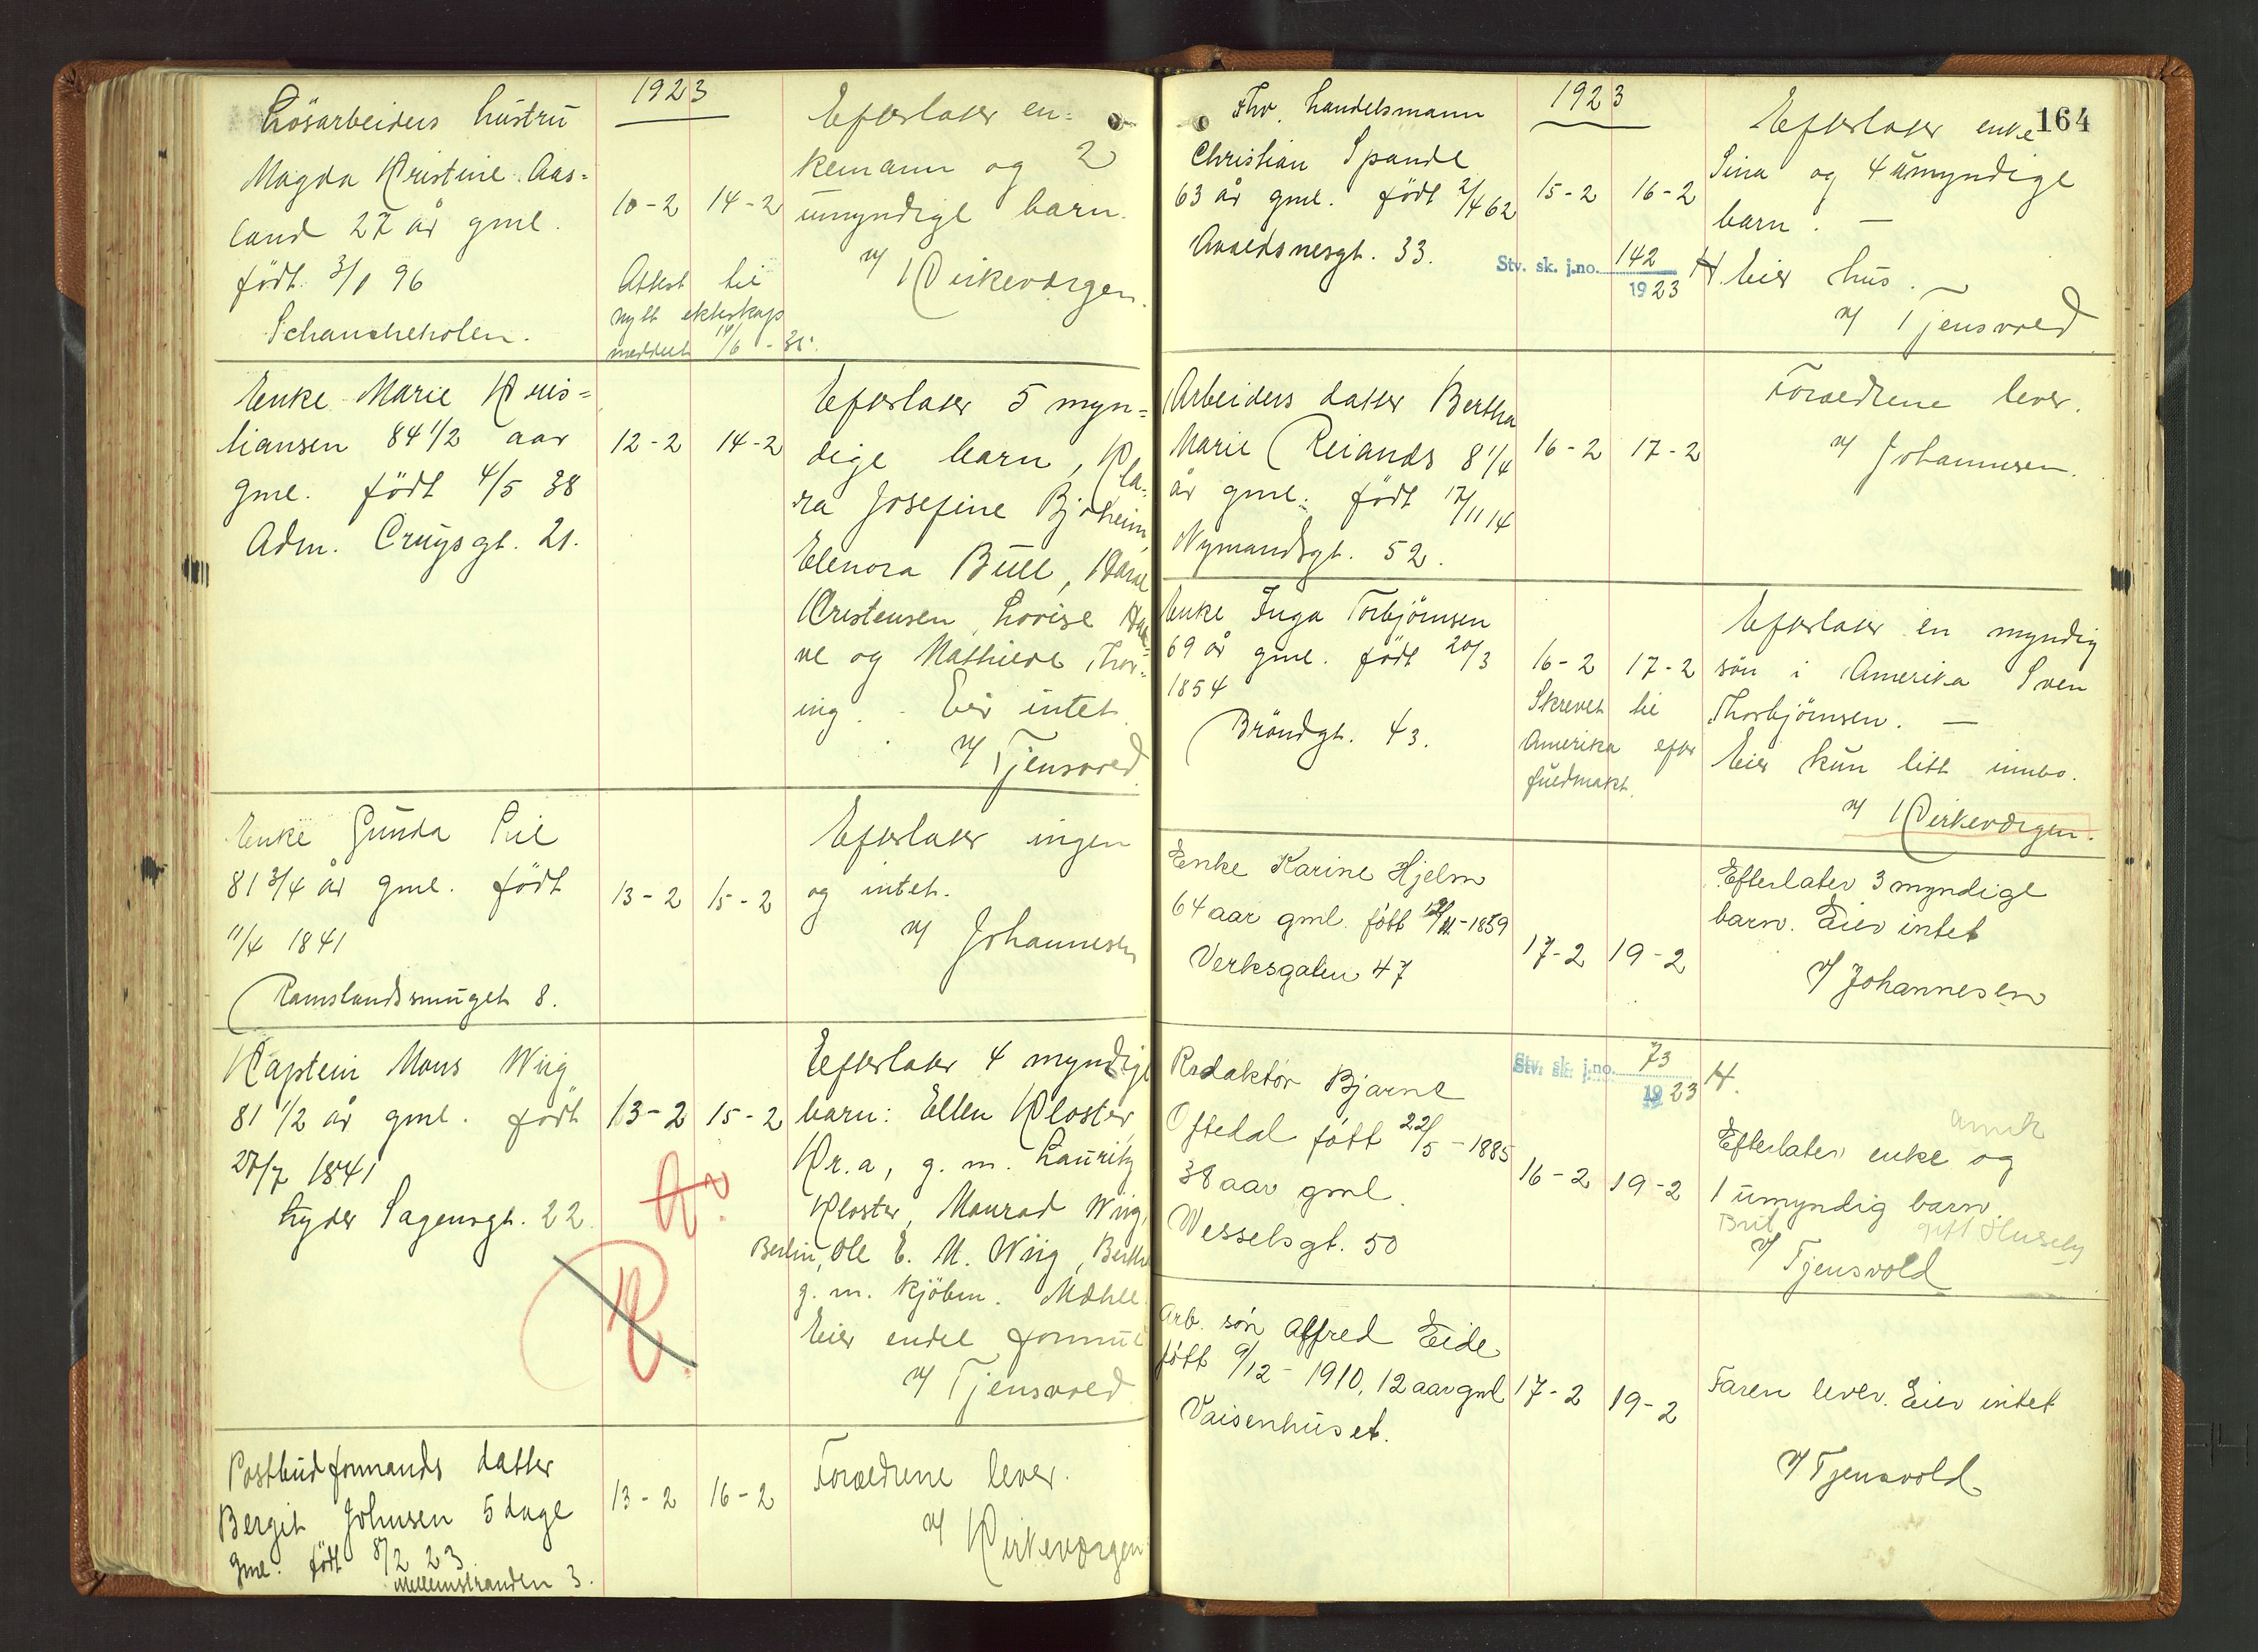 1923
Lösarbeiders hustru
Magda Kristine Aas=
land 27 år gml.
født 3/1 96
Schancheholen.
10-2 14-2
Attest til
nytt ekteskap
meddelt
Efterlater en=
kemann og 2
umyndige barn.
v/ Kirkeværgen.
Enke Marie Kris=
tiansen 84 1/2 aar
gml. født 4/5 38
Adm. Cruysgt. 21.
12-2 14-2
Efterlater 5 myn=
dige barn, Kla=
ra Josefine Bjoheim,
Elenora Bull,
Kristensen, Lovise
og Mathilde Thor=
ing. - Eier intet.
v/ Tjensvold
Enke Gunda
81 3/4 år gml. født
11/4 1841
Ramslandsmuget 8.
13-2 15-2
Efterlater ingen
og intet.
v/ Johannesen
Kaptein Mons Wiig
81 1/2 år gml. født
27/7 1841
Lyder Sagensgt. 22.
13-2 15-2
Efterlater 4 myndige
barn: Ellen Kloster,
Kr.a, g. m. Lauritz
Kloster, Monrad Wiig,
Berlin, Ole E. M. Wiig,
g. m. kjöbm. Mæhle.
Eier endel formue
v/ Tjensvold
Postbudformands datter
Bergit Johnsen 5 dage
gml. født 8/2 23
Mellemstranden 3.
13-2 16-2
Forældrene lever.
v/ Kirkeværgen
164
1923
Fhv. handelsmann
Christian Spande
63 år gml. født 2/4 62
Avaldsnesgt. 33.
15-2 16-2
Stv. sk. j.no. 142
1923
Efterlater enke
Sina og 4 umyndige
barn. -
H. Eier hus.
v/ Tjensvold
Arbeiders datter Bertha
Marie Reiands 8 1/4
år gml. født 17/11 14
Nymandsgt. 52.
16-2 17-2
Forældrene lever.
v/ Johannesen.
Enke Inga Torbjörnsen
69 år gml. født 20/3
1854
Bröndgt. 43.
16-2 17-2
Skrevet til
Amerika efter
fuldmakt.
Efterlater en myndig
sön i Amerika Sven
Thorbjörnsen. -
Eier kun litt innbo.
v/ Kirkeværgen.
Enke Karine Hjelm
64 aar gml. født -1859
Verksgaten 47
17-2 19-2
Efterlater 3 myndige
barn. Eier intet
v/ Johannesen
Redaktör Bjarne
Oftedal født 22/5 - 1885
38 aar gml.
Wesselsgt. 50
Stv. sk. j.no. 73
1923
16-2 19-2
H.
Efterlater enke og
1 umyndig barn.
Brit
gift
v/ Tjensvold
Arb. sön Alfred Eide
født 9/12 - 1910, 12 aar gml
Vaisenhuset.
17-2 19-2
Faren lever. Eier intet
v/ Tjensvold